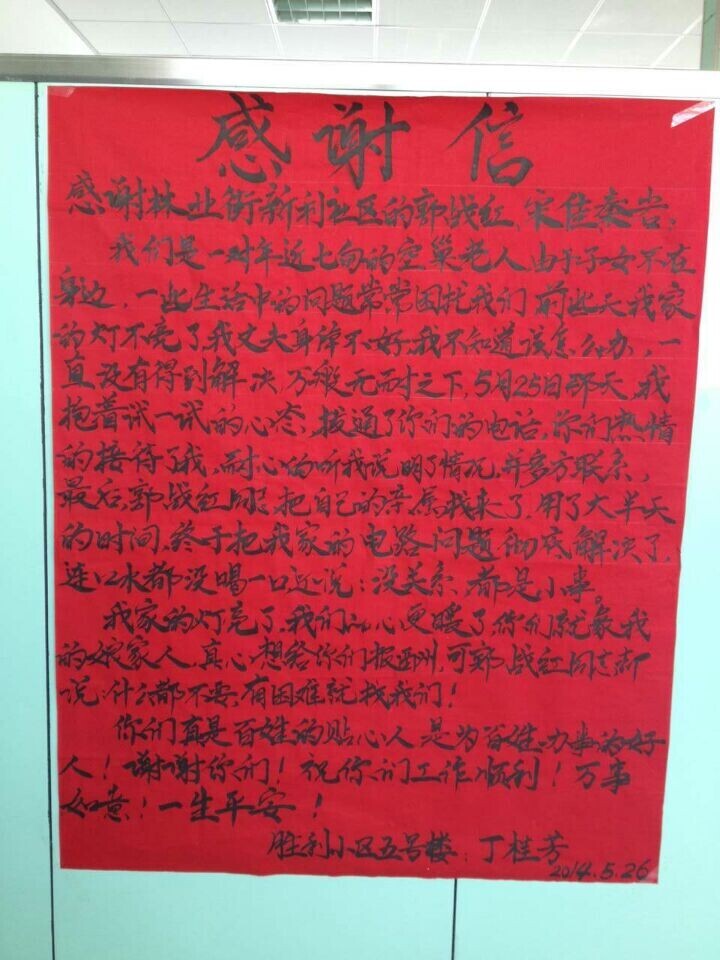 感谢信
感谢林业街新利社区的郭战红、宋佳
我们是一对年近七旬的空巢老人,由于子女不在
身边,一些生活中的问题常常困扰我们,前些天我家
的灯不亮了,我丈夫身体不好,我不知道该怎么办,一
直没有得到解决,万般无耐之下,5月25日那天,我
抱着试一试的心态,拨通了你们的电话,你们热情
的接待了我,耐心的听我说明了情况,并多方联系,
最后,郭战红同志把自己的亲属找来了,用了大半天
的时间,终于把我家的电路问题彻底解决了,
连口水都没喝一口还说:没关系,都是小事。
我家的灯亮了,我们的心更暖了,你们就象我
的娘家人,真心想给你们报酬,可郭战红同志却
说:什么都不要,有困难就找我们!
你们真是百姓的贴心人,是为百姓办事的好
人!谢谢你们!祝你们工作顺利!万事
如意!一生平安!
胜利小区五号楼:丁桂芳
2014.5.26